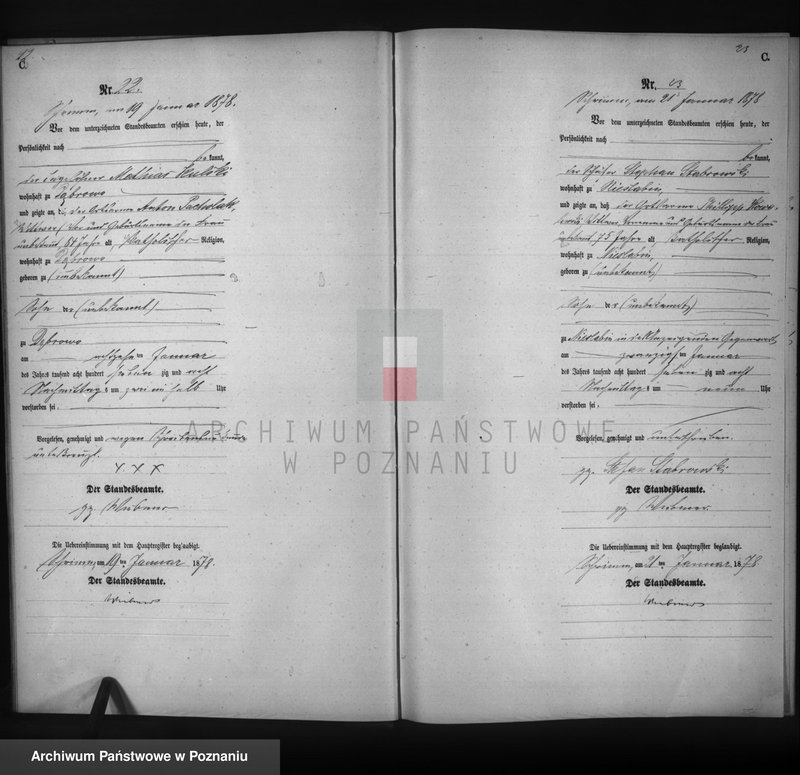 22
C.
Nr. 22.
Schrimm, am 19 Januar 1878.
Vor dem unterzeichneten Standesbeamten erschien heute, der
Persönlichkeit nach
bekannt,
der Tagelöhner Mathias
wohnhaft zu Dąbrowo
und zeigte an, daß der Ortsarme Anton
Wittwer, Vor und Geburtsname der Frau
unbekannt 84 Jahre alt, katholischer Religion,
wohnhaft zu Dąbrowo
geboren zu (unbekannt)
Sohn der (unbekannt)
zu Dąbrowo
am achtzehnten Januar
des Jahres tausend acht hundert siebenzig und acht
Nachmittags um zwei ein halb Uhr
verstorben sei.
Vorgelesen, genehmigt und wegen
unterkreuzt.
X X X
Der Standesbeamte.
gz.
Die Uebereinstimmung mit dem Hauptregister beglaubigt.
Schrimm, am 19 ten Januar 1878.
Der Standesbeamte.
23
C.
Nr. 23
Schrimm, am 21 Januar 1878
Vor dem unterzeichneten Standesbeamten erschien heute, der
Persönlichkeit nach
bekannt,
der Schäfer Stephan Stabrowski
wohnhaft zu Niesłabin,
und zeigte an, daß der Ortsarme Philipp
Wittwer, und Geburtsname der Frau
unbekannt, 75 Jahre alt katholischer Religion,
wohnhaft zu Niesłabin,
geboren zu (unbekannt)
Sohn der (unbekannt)
zu Niesłabin in des Anzeigenden Gegenwart
am zwanzigsten Januar
des Jahres tausend acht hundert siebenzig und acht
Nachmittags um neun Uhr
verstorben sei.
Vorgelesen, genehmigt und unterschrieben.
gz. Stefan Stabrowski
Der Standesbeamte.
gz.
Die Uebereinstimmung mit dem Hauptregister beglaubigt.
Schrimm, am 21 ten Januar 1878.
Der Standesbeamte.
ARCHIWUM PAŃSTWOWE
W POZNANIU
Archiwum Państwowe w Poznaniu